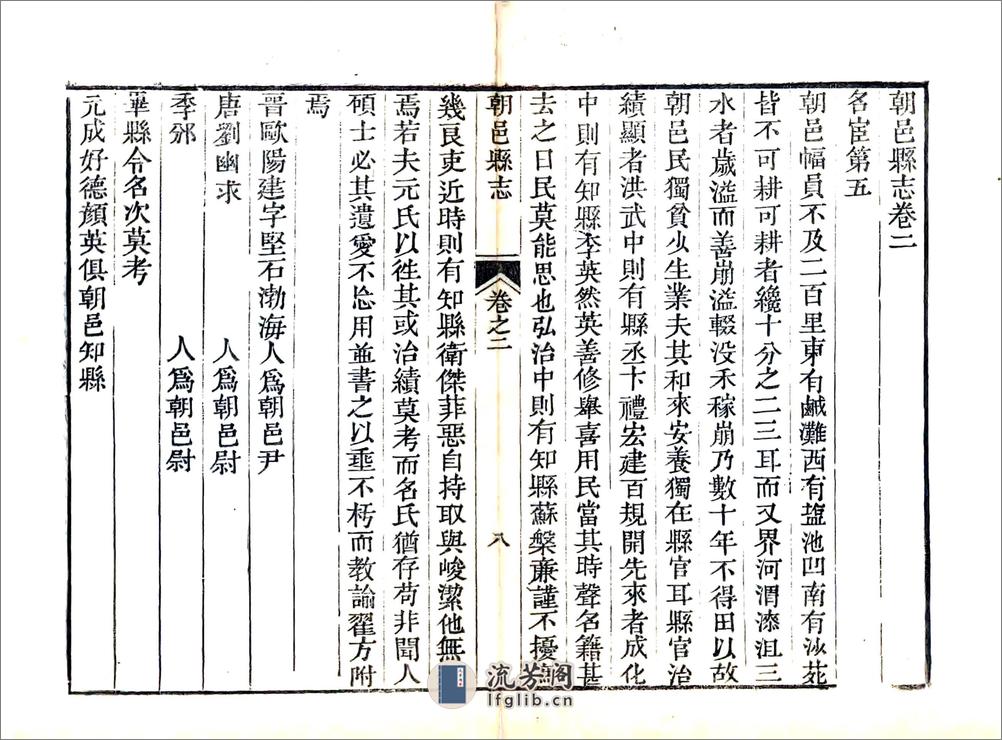 朝邑縣志卷二
名宦第五
朝邑幅員不及二百里東有鹹灘西有鹽池凹南有沙苑
皆不可耕可耕者纔十分之二三耳而又界河渭漆沮三
水者歲溢而善崩溢輟没禾稼崩乃數十年不得田以故
朝邑民獨貧少生業夫其和來安養獨在縣官耳縣官治
績顯者洪武中則有縣丞卞禮宏建百規開先來者成化
中則有知縣李英然英善修舉喜用民當其時聲名籍甚
去之日民莫能思也弘治中則有知縣蘇槃亷謹不擾
朝邑縣志
卷之二
八
幾良吏近時則有知縣衛傑菲惡自持取與峻潔他無
焉若夫元氏以徃其或治績莫考而名氏猶存苟非聞人
碩士必其遺愛不忩用並書之以垂不朽而教諭翟方附
焉
晉歐陽建字堅石渤海人爲朝邑尹
唐劉幽求 人爲朝邑尉
季邠 人爲朝邑尉
畢縣令名次莫考
元成好德顏英俱朝邑知縣
流芳閣
lfglib.cn